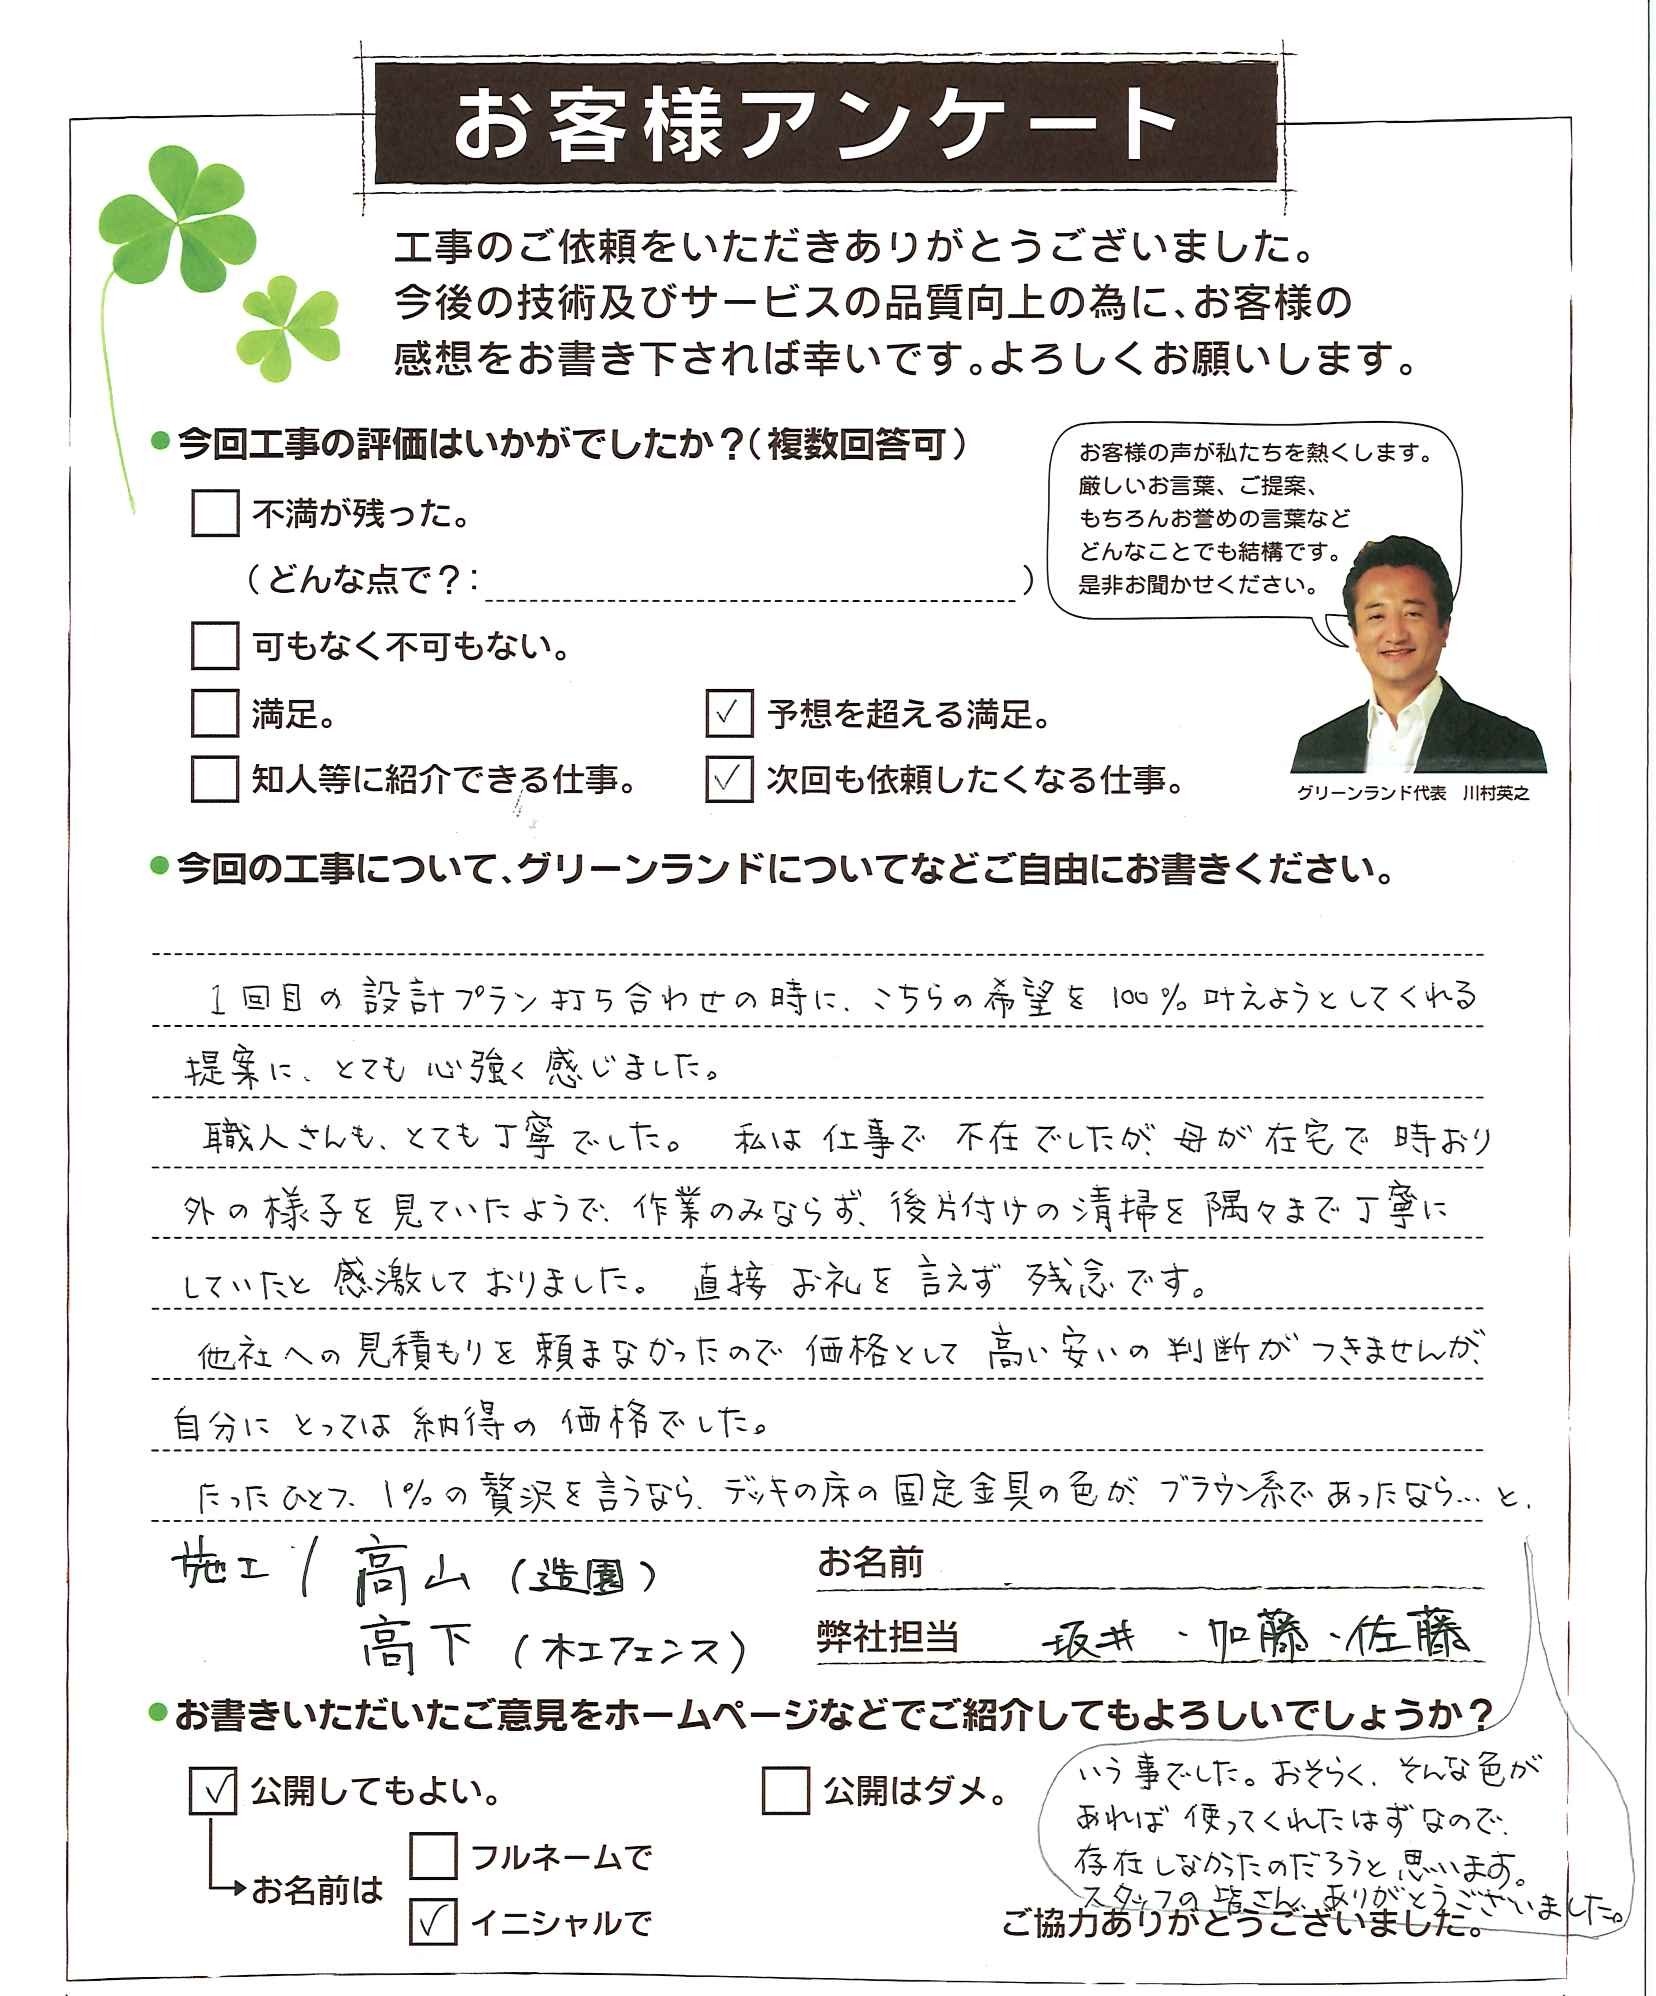 お客様アンケート
工事のご依頼をいただきありがとうございました。
今後の技術及びサービスの品質向上の為に、お客様の
感想をお書き下されば幸いです。よろしくお願いします。
●今回工事の評価はいかがでしたか？（複数回答可）
お客様の声が私たちを熱くします。
厳しいお言葉、ご提案、
もちろんお誉めの言葉など
どんなことでも結構です。
是非お聞かせください。
グリーンランド代表　川村英之
不満が残った。
（どんな点で？：　）
可もなく不可もない。
満足。
✓ 予想を超える満足。
知人等に紹介できる仕事。
✓ 次回も依頼したくなる仕事。
●今回の工事について、グリーンランドについてなどご自由にお書きください。
1回目の設計プラン打ち合わせの時に、こちらの希望を100%叶えようとしてくれる
提案に、とても心強く感じました。
職人さんも、とても丁寧でした。私は仕事で不在でしたが、母が在宅で時おり
外の様子を見ていたようで、作業のみならず、後片付けの清掃を隅々まで丁寧に
していたと感激しておりました。直接お礼を言えず残念です。
他社への見積もりを頼まなかったので価格として高い安いの判断がつきませんが、
自分にとっては納得の価格でした。
たったひとつ、1%の贅沢を言うなら、デッキの床の固定金具の色が、ブラウン系であったなら…と、
施工/高山（造園）
高下（木工フェンス）
お名前
弊社担当　坂井・加藤・佐藤
●お書きいただいたご意見をホームページなどでご紹介してもよろしいでしょうか？
✓ 公開してもよい。
公開はダメ。
お名前は
フルネームで
✓ イニシャルで
いう事でした。おそらく、そんな色が
あれば使ってくれたはずなので、
存在しなかったのだろうと思います。
スタッフの皆さん、ありがとうございました。
ご協力ありがとうございました。